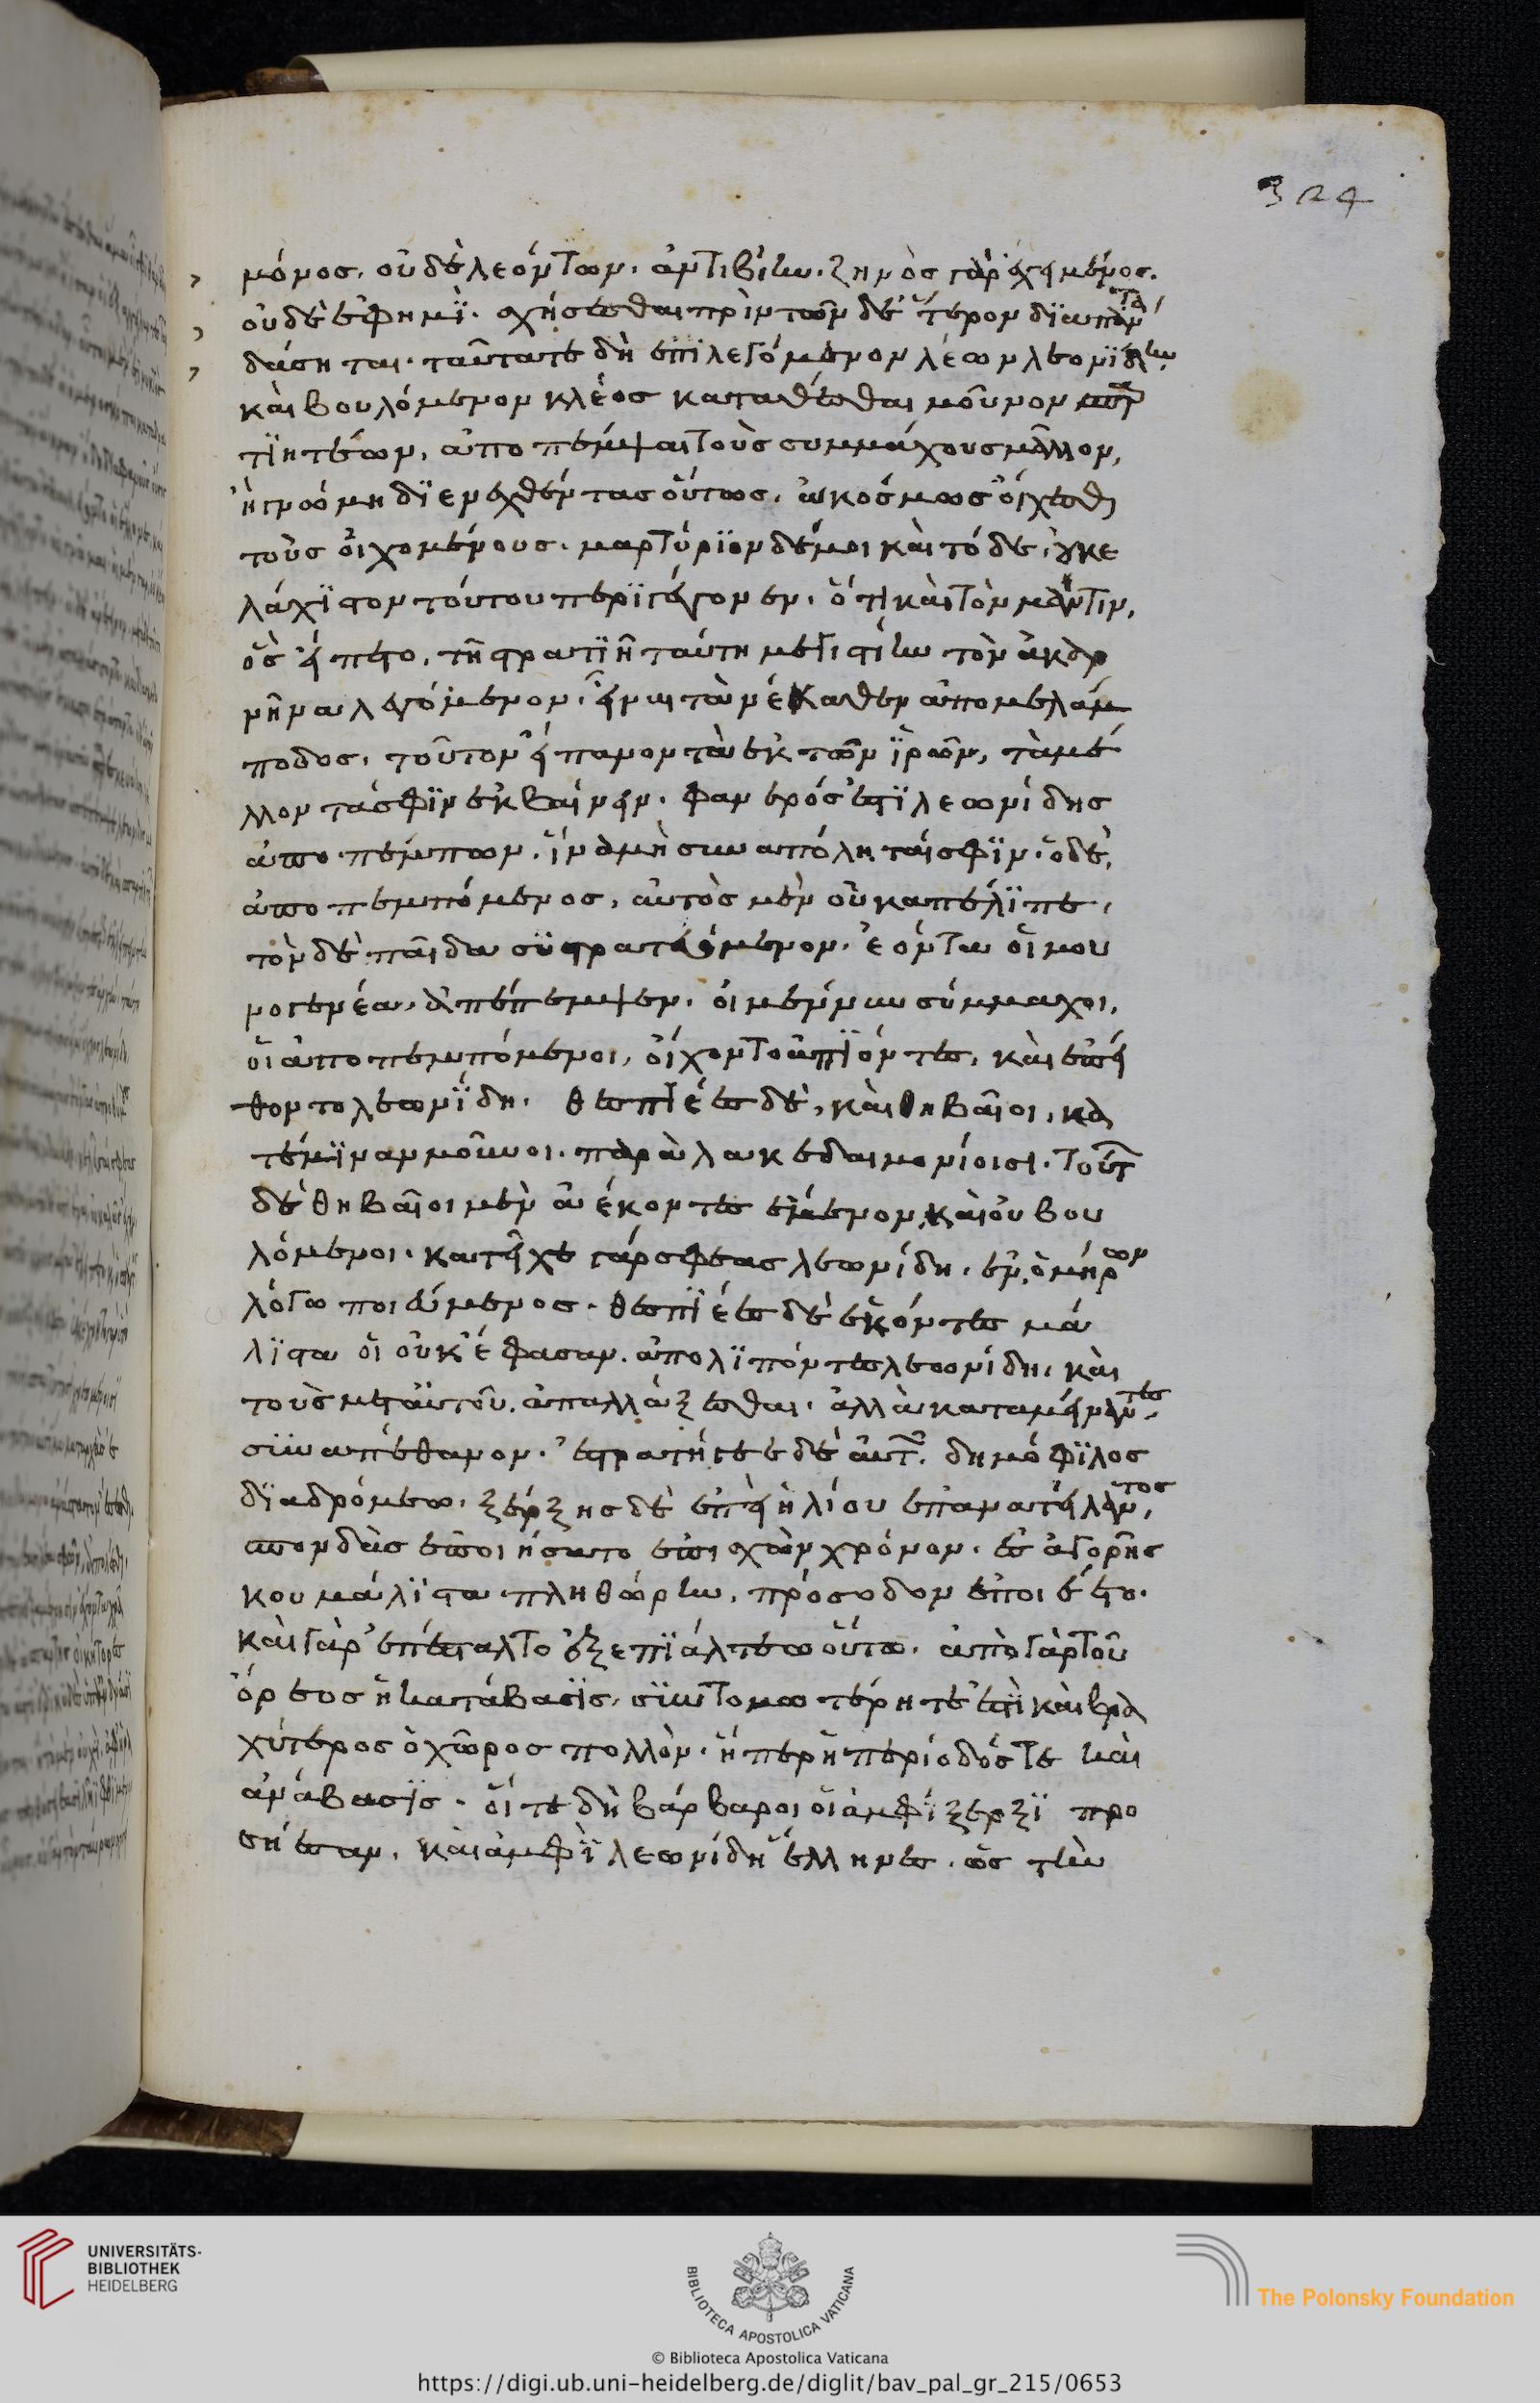 324
μένος. οὐδὲ λεόντων. ἀντιβίην. ζηνὸς γὰρ ἔχει μένος.
οὐδέ ἑ φημὶ. σχήσεσθαι πρὶν τῶν δ' ἕτερον διαπάντα
δάσηται. ταῦτά τε δὴ ἐπιλεγόμενον λέων λεονίδην,
καὶ βουλόμενον κλέος καταθέσθαι μοῦνον σπαρ
τιητέων, ἀποπέμψαι τοὺς συμμάχους μᾶλλον,
ἢ γνώμη διενεχθέντας οὕτως. ἀκόσμως οἴχεσθαι
τοὺς οἰχομένους. μαρτύριον δέ μοι καὶ τόδε, οὐκ ἐ
λάχιστον τούτου πέρι γέγονεν. ὅτι καὶ τὸν μάντιν,
ὃς εἵπετο, τῆ στρατιῆ ταύτη μεγιστίην τὸν ἀκαρ
νῆνα λεγόμενον. εἶναι τὰ νέκαθεν ἀπὸ μελάμ
ποδος, τοῦτον εἴπανον τὰ ἐκ τῶν ἱρῶν, τὰ μέ
λλοντά σφιν ἐκβαίνειν. φανερός ἐστι λεωνίδης
ἀποπέμπων. ἵνα μὴ συναπόληταί σφιν. ὁ δὲ,
ἀποπεμπόμενος, αὐτὸς μὲν οὐκ ἀπέλιπε,
τὸν δὲ παῖδα συστρατευόμενον. ἐόντα οἱ μου
νογενέα, ἀπέπεμψεν. οἱ μέν νυν σύμμαχοι,
οἱ ἀποπεμπόμενοι, οἴχοντο ἀπιόντες, καὶ ἐπεί
θοντο λεωνίδη. θεσπιέες δὲ, καὶ θηβαῖοι, κα
τέμιναν μοῦνοι. παρὰ λακεδαιμονίοισι. τούτων
δὲ θηβαῖοι μὲν ἀέκοντες ἔμενον, καὶ οὐ βου
λόμενοι. κατεῖχε γάρ σφεας λεωνίδη. ἐν ὁμήρων
λόγω ποιεύμενος. θεσπιέες δὲ ἑκόντες μά
λιστα οἳ οὐκ ἔφασαν. ἀπολιπόντες λεωνίδη, καὶ
τοὺς μετ' αὐτοῦ. ἀπαλλάξεσθαι. ἀλλὰ καταμείναντες
συναπέθανον. ἐστρατήγεε δὲ αὐτῶν. δημόφιλος
διαδρόμεω. ξέρξης δὲ ἐπεὶ ἡλίου ἐπανατείλαντος,
σπονδὰς ἐποιήσατο ἐπισχὼν χρόνον. ἐς ἀγορῆς
κου μάλιστα πληθώρην, πρόσοδον ἐποιέετο.
καὶ γὰρ ἐπέσταλτο ἐξ ἐπιάλτεω οὕτω. ἀπὸ γὰρ τοῦ
ὄρεος ἡ κατάβασις, συντομωτέρη τέ ἐστι καὶ βρα
χύτερος ὁ χῶρος πολλὸν. ἤπερ ἡ περίοδός τε καὶ
ἀνάβασις. οἵ τε δὴ βάρβαροι οἱ ἀμφὶ ξέρξι προ
σήεσαν, καὶ ἀμφὶ λεωνίδη ἕλληνες. ὡς τὴν
UNIVERSITÄTS-
BIBLIOTHEK
HEIDELBERG
BIBLIOTECA APOSTOLICA VATICANA
The Polonsky Foundation
© Biblioteca Apostolica Vaticana
https://digi.ub.uni-heidelberg.de/diglit/bav_pal_gr_215/0653